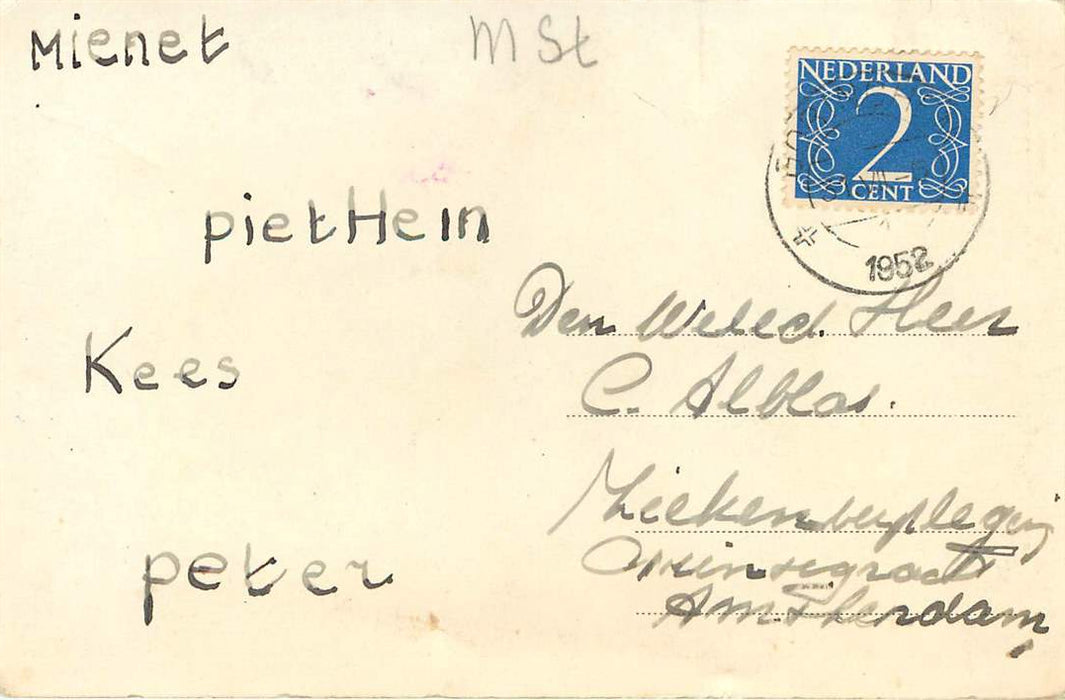 Mienet
M St
NEDERLAND
2
CENT
1952
pietHein
Kees
peter
Den Weled. Heer
C. Alblas.
Ziekenverpleging
Prinsegracht
Amsterdam,